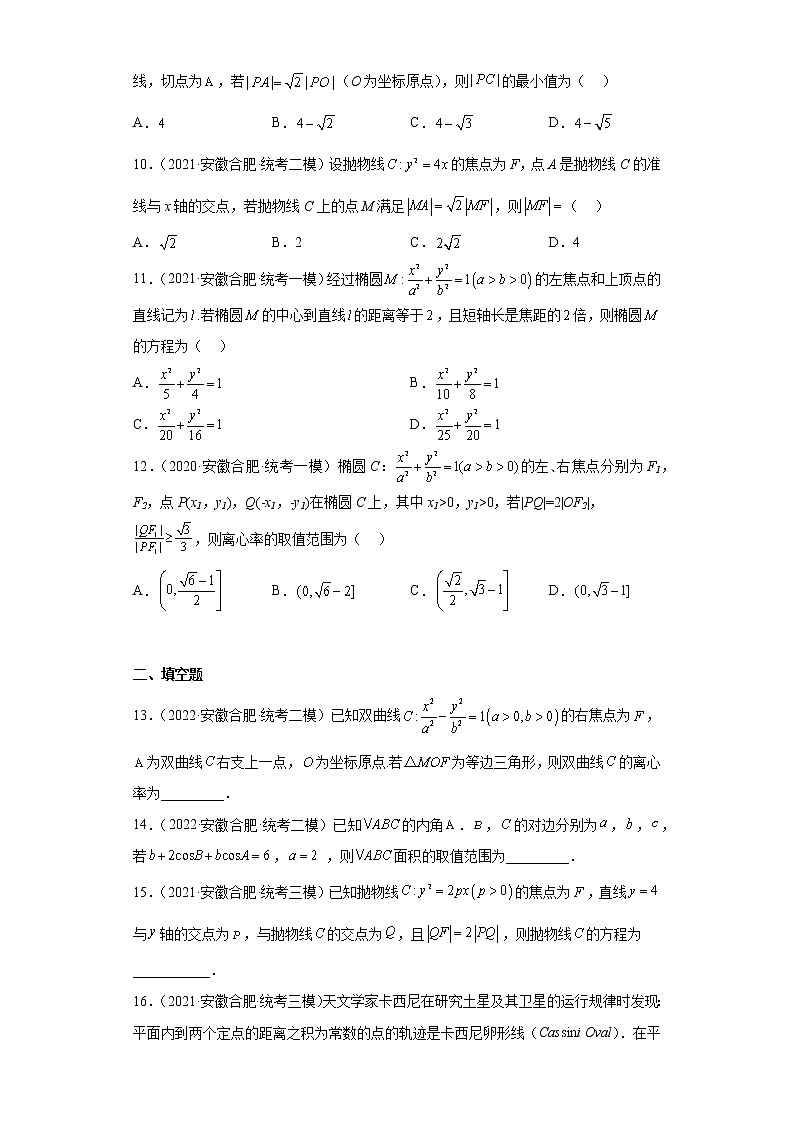 线，切点为A，若|PA|=√2|PO|（O为坐标原点），则|PC|的最小值为（ ）
A．4 B．4−√2 C．4−√3 D．4−√5
10．（2021·安徽合肥·统考二模）设抛物线C:y²=4x的焦点为F，点A是抛物线C的准
线与x轴的交点，若抛物线C上的点M满足|MA|=√2|MF|，则|MF|=（ ）
A．√2 B．2 C．2√2 D．4
11．（2021·安徽合肥·统考一模）经过椭圆M:x²/a²+y²/b²=1(a>b>0)的左焦点和上顶点的
直线记为l.若椭圆M的中心到直线l的距离等于2，且短轴长是焦距的2倍，则椭圆M
的方程为（ ）
A．x²/5+y²/4=1 B．x²/10+y²/8=1
C．x²/20+y²/16=1 D．x²/25+y²/20=1
12．（2020·安徽合肥·统考一模）椭圆C：x²/a²+y²/b²=1(a>b>0)的左、右焦点分别为F₁，
F₂，点P(x₁，y₁)，Q(-x₁，-y₁)在椭圆C上，其中x₁>0，y₁>0，若|PQ|=2|OF₂|，
|QF₁|/|PF₁|≥√3/3，则离心率的取值范围为（ ）
A．(0,(√6−1)/2] B．(0,√6−2] C．(√2/2,√3−1] D．(0,√3−1]
二、填空题
13．（2022·安徽合肥·统考二模）已知双曲线C:x²/a²−y²/b²=1(a>0,b>0)的右焦点为F，
A为双曲线C右支上一点，O为坐标原点.若△MOF为等边三角形，则双曲线C的离心
率为_________．
14．（2022·安徽合肥·统考二模）已知VABC的内角A．B，C的对边分别为a，b，c，
若b+2cosB+bcosA=6，a=2 ，则VABC面积的取值范围为_________．
15．（2021·安徽合肥·统考三模）已知抛物线C:y²=2px(p>0)的焦点为F，直线y=4
与y轴的交点为P，与抛物线C的交点为Q，且|QF|=2|PQ|，则抛物线C的方程为
___________．
16．（2021·安徽合肥·统考三模）天文学家卡西尼在研究土星及其卫星的运行规律时发现：
平面内到两个定点的距离之积为常数的点的轨迹是卡西尼卵形线（Cassini Oval）．在平